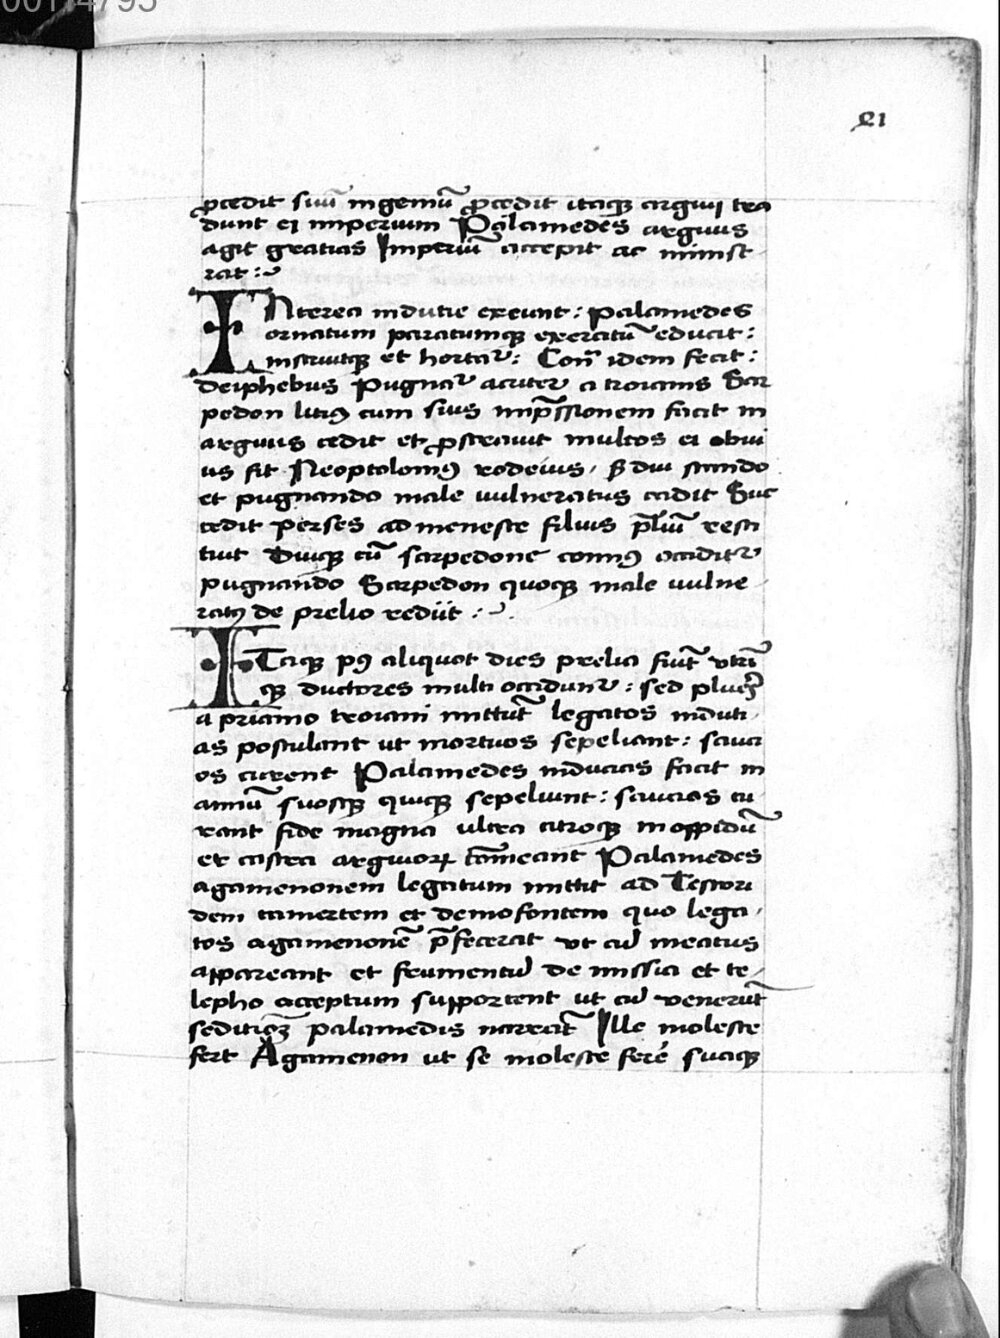 00114795
21
ꝓcedit siuū ingeniū ꝓcedit itaqꝫ argiui tra
dunt ei imperium Palamedes argiuis
agit gratias Imperiū accepit ac minist
rat :~
INterea indutie exeunt : palamedes
ornatum paratumqꝫ exercitū educit :
instruitqꝫ et hortat᷑ : Con̄ idem fecit :
deiphebus Pugnat᷑ acriter a troianis Sar
pedon liciꝰ cum suis imp̄ssionem facit in
argiuis cedit et ꝓstrauit multos ei obui
us fit Neoptolomꝰ rodeius / S diu stando
et pugnando male uulneratus cadit Suc
cedit perses admeneste filius p̄liū resti
tiut Diuqꝫ cū sarpedone commꝰ occidit᷑
pugnando Sarpedon quoqꝫ male uulne
ratꝰ de prelio rediit :~
ITaqꝫ pꝰ aliquot dies prelia fiūt vtri
qꝫ ductores multi occidunt᷑ : sed plures
a priamo troiani mittūt legatos induti
as postulant ut mortuos sepeliant : sauci
os curent Palamedes inducias facit in
annū suosqꝫ quiqꝫ sepeliunt : saucios cu
rant fide magna ultra citroqꝫ in oppidū
et castra argiuorꝝ cōmeant Palamedes
agamenonem legatum mittit ad Testori
dem camertem et demofontem quo lega
tos agamenonē p̄fecerat vt cū meatus
appareant et frumentū de missia et te
lepho acceptum supportent ut cū venerūt
seditiōꝫ palamedis narrāt Ille moleste
fert Agamenon ut se moleste ferē suaqꝫ